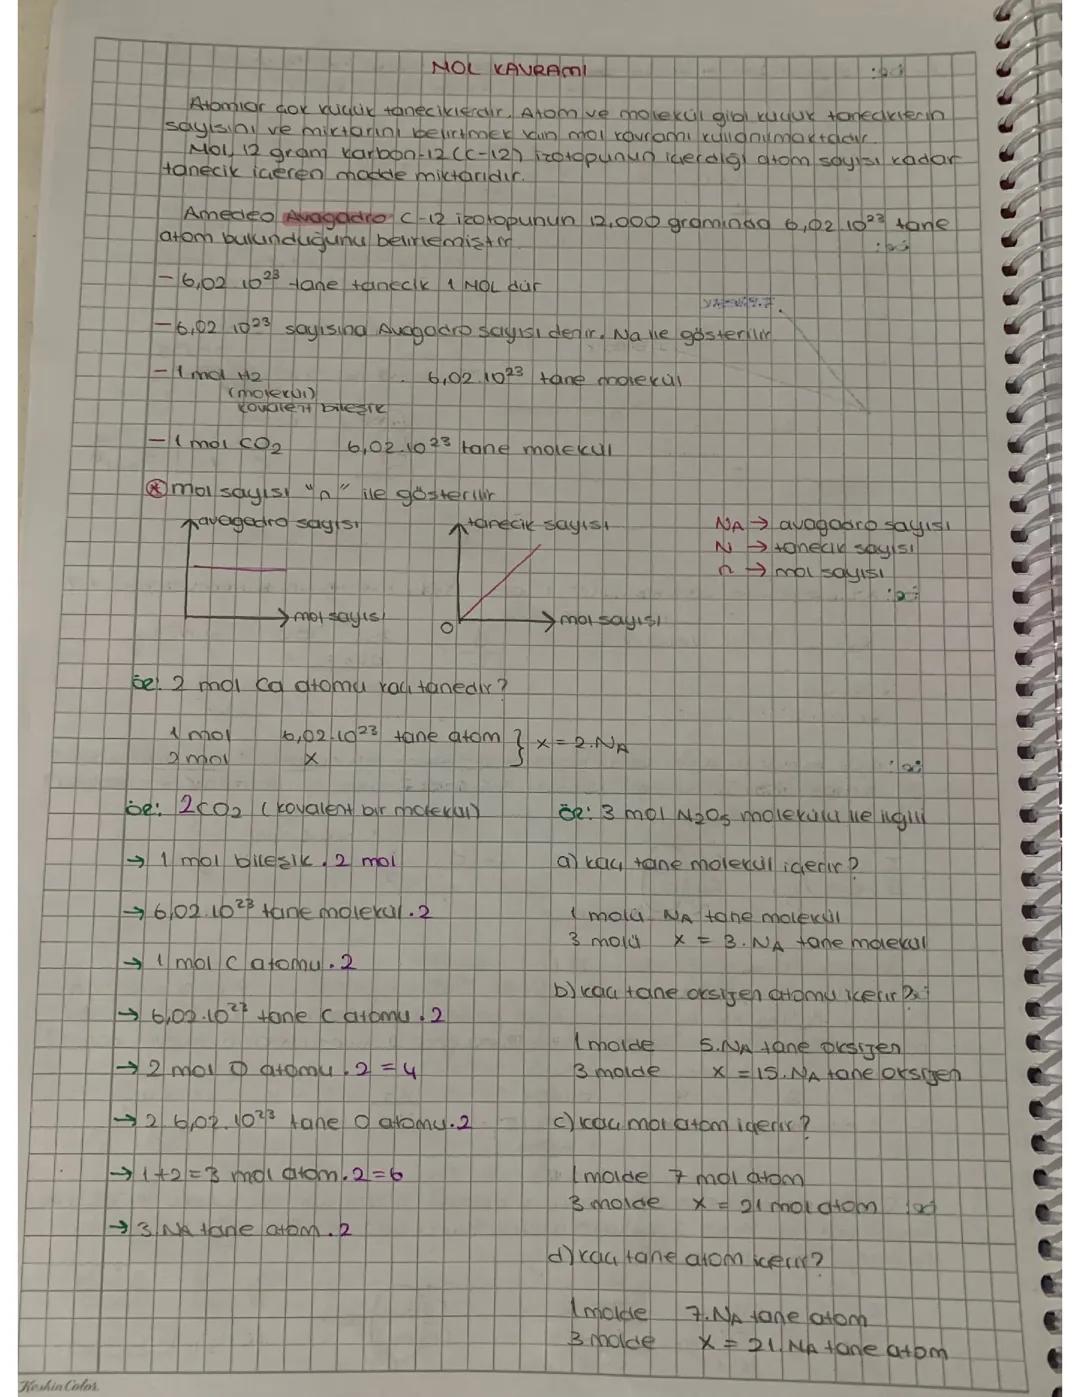 MOL KAVRAMI
Atomlar çok küçük taneciklerdir. Atom ve molekül gibi küçük taneciklerin
sayısını ve miktarını belirtmek için mol kavramı kullanılmaktadır.
Mol, 12 gram karbon-12 (C-12) izotopunun içerdiği atom sayısı kadar
tanecik içeren madde miktarıdır.
Amedeo Avagadro C-12 izotopunun 12,000 gramında 6,02.10²³ tane
atom bulunduğunu belirlemiştir.
- 6,02.10²³ tane tanecik 1 MOL dür
- 6,02.10²³ sayısına Avogadro sayısı denir. Na ile gösterilir
- 1 mol H2 6,02.10²³ tane molekül
(molekül)
kovalent bileşik
- 1 mol CO2 6,02.10²³ tane molekül
* mol sayısı "n" ile gösterilir
avogadro sayısı
mol sayısı
tanecik sayısı
0
mol sayısı
NA → avogadro sayısı
N → tanecik sayısı
n → mol sayısı
ör: 2 mol Ca atomu kaç tanedir?
1 mol 6,02.10²³ tane atom } x = 2.NA
2 mol x
ör: 2CO2 (kovalent bir molekül)
→ 1 mol bileşik . 2 mol
→ 6,02.10²³ tane molekül . 2
→ 1 mol C atomu . 2
→ 6,02.10²³ tane C atomu . 2
→ 2 mol O atomu . 2 = 4
→ 2 6,02.10²³ tane O atomu . 2
→ 1+2=3 mol atom . 2 = 6
→ 3.NA tane atom . 2
ör: 3 mol N2O5 molekülü ile ilgili
a) kaç tane molekül içerir?
1 molü NA tane molekül
3 molü x = 3.NA tane molekül
b) kaç tane oksijen atomu içerir?
1 molde 5.NA tane oksijen
3 molde x = 15.NA tane oksijen
c) kaç mol atom içerir?
1 molde 7 mol atom
3 molde x = 21 mol atom
d) kaç tane atom içerir?
1 molde 7.NA tane atom
3 molde x = 21.NA tane atom
KeskinColor